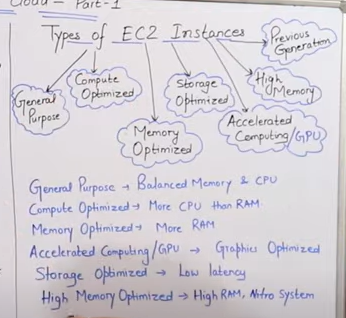 Cloud - Part-1
Types of EC2 Instances
Previous
Generation
Compute
Optimized
Storage
Optimized
High
Memory
General
Purpose
Memory
Optimized
Accelerated
Computing/GPU
General Purpose → Balanced Memory & CPU
Compute Optimized → More CPU than RAM
Memory Optimized → More RAM
Accelerated Computing/GPU → Graphics Optimized
Storage Optimized → Low latency
High Memory Optimized → High RAM, Nitro System